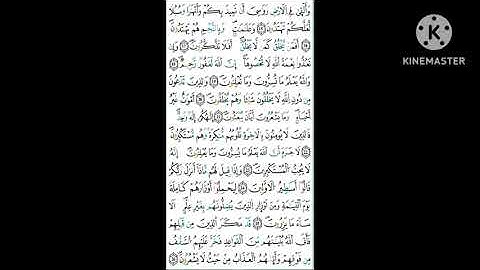 وَأَلْقَىٰ فِي الْأَرْضِ رَوَٰسِيَ أَن تَمِيدَ بِكُمْ وَأَنْهَٰرًا وَسُبُلًا
لَّعَلَّكُمْ تَهْتَدُونَ ﴿١٥﴾ وَعَلَٰمَٰتٍ ۚ وَبِالنَّجْمِ هُمْ يَهْتَدُونَ
﴿١٦﴾ أَفَمَن يَخْلُقُ كَمَن لَّا يَخْلُقُ ۗ أَفَلَا تَذَكَّرُونَ ﴿١٧﴾ وَإِن
تَعُدُّوا نِعْمَةَ اللَّهِ لَا تُحْصُوهَا ۗ إِنَّ اللَّهَ لَغَفُورٌ رَّحِيمٌ ﴿١٨﴾
وَاللَّهُ يَعْلَمُ مَا تُسِرُّونَ وَمَا تُعْلِنُونَ ﴿١٩﴾ وَالَّذِينَ يَدْعُونَ
مِن دُونِ اللَّهِ لَا يَخْلُقُونَ شَيْئًا وَهُمْ يُخْلَقُونَ ﴿٢٠﴾ أَمْوَٰتٌ غَيْرُ
أَحْيَاءٍ ۖ وَمَا يَشْعُرُونَ أَيَّانَ يُبْعَثُونَ ﴿٢١﴾ إِلَٰهُكُمْ إِلَٰهٌ وَٰحِدٌ ۚ
فَالَّذِينَ لَا يُؤْمِنُونَ بِالْآخِرَةِ قُلُوبُهُم مُّنكِرَةٌ وَهُم مُّسْتَكْبِرُونَ
﴿٢٢﴾ لَا جَرَمَ أَنَّ اللَّهَ يَعْلَمُ مَا يُسِرُّونَ وَمَا يُعْلِنُونَ ۚ إِنَّهُ
لَا يُحِبُّ الْمُسْتَكْبِرِينَ ﴿٢٣﴾ وَإِذَا قِيلَ لَهُم مَّاذَا أَنزَلَ رَبُّكُمْ
قَالُوا أَسَٰطِيرُ الْأَوَّلِينَ ﴿٢٤﴾ لِيَحْمِلُوا أَوْزَارَهُمْ كَامِلَةً
يَوْمَ الْقِيَٰمَةِ وَمِنْ أَوْزَارِ الَّذِينَ يُضِلُّونَهُم بِغَيْرِ عِلْمٍ ۗ أَلَا
سَاءَ مَا يَزِرُونَ ﴿٢٥﴾ قَدْ مَكَرَ الَّذِينَ مِن قَبْلِهِمْ
فَأَتَى اللَّهُ بُنْيَٰنَهُم مِّنَ الْقَوَاعِدِ فَخَرَّ عَلَيْهِمُ السَّقْفُ
مِن فَوْقِهِمْ وَأَتَىٰهُمُ الْعَذَابُ مِنْ حَيْثُ لَا يَشْعُرُونَ ﴿٢٦﴾
KINEMASTER